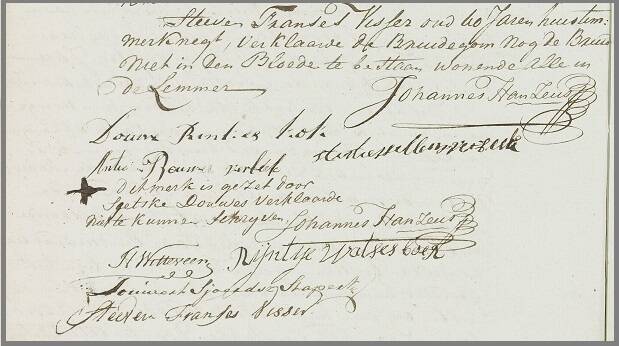 Steeven Franses Visser oud 60 Jaren huistim:
merknegt, verklaarde de Bruidegom nog de Bruid
Niet in den Bloede te bestaan wonende alle in
de Lemmer
Johannes Hanzens
Douwe
Antie Bouwe
Dit merk is gezet door
Sjetske Douwes verklaarde
niet te kunnen schrijven Johannes Hanzens
H Witteveen Rijntje Watses boek
Sjoerds Stapert
Steeven Franses Visser